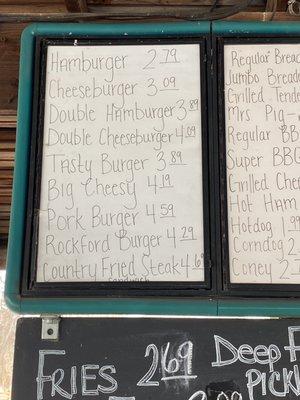 Hamburger 2.79
Cheeseburger 3.09
Double Hamburger 3.89
Double Cheeseburger 4.09
Tasty Burger 3.89
Big Cheesy 4.19
Pork Burger 4.59
Rockford Burger 4.29
Country Fried Steak 4.6
Sandwich
Regular Brea
Jumbo Bread
Grilled Tende
Mrs Pig-
Regular BB
Super BBQ
Grilled Chee
Hot Ham
Hotdog 1.
Corndog 2
Coney 2.
FRIES 2.69
Deep F
PicKl